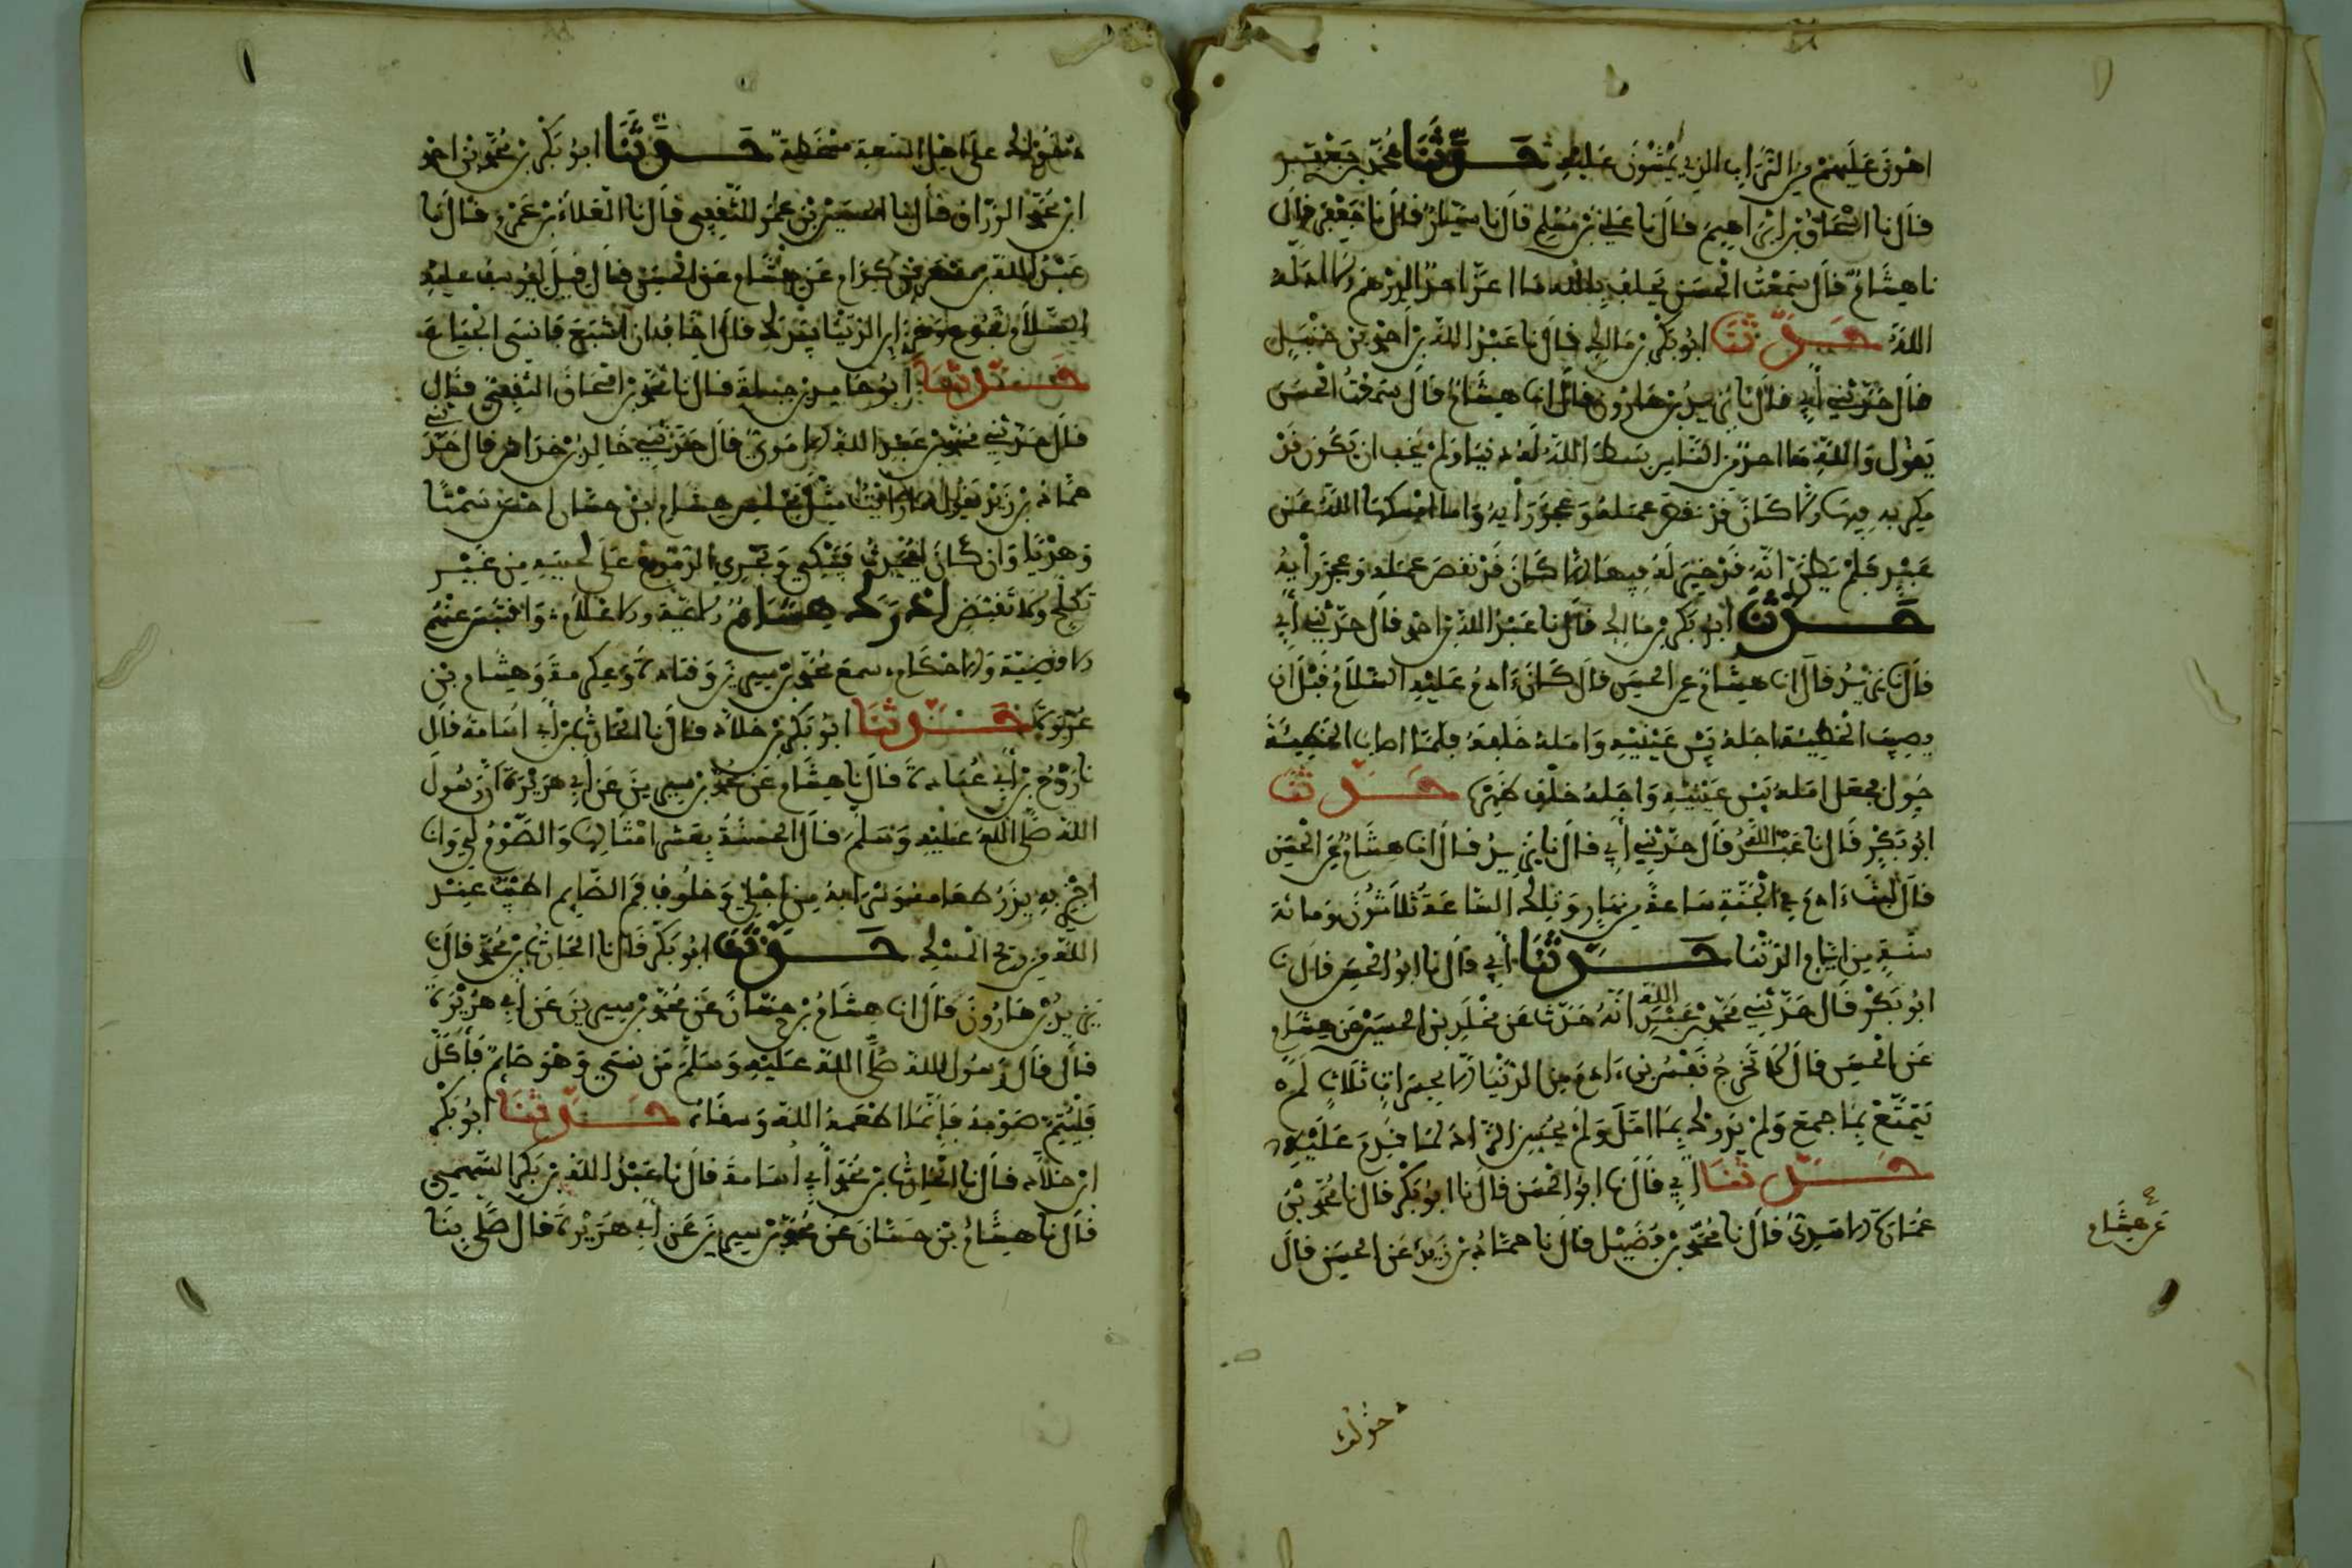 اهون عليهم من التراب الذي يمشون عليه حدثنا محمد بن جعفر
قال نا اسحاق بن ابراهيم قال نا علي بن مسلم قال نا سيار قال نا جعفر قال
نا هشام قال سمعت الحسن يحلف بالله ما اعز احد الدرهم الا اذله
الله حدثنا ابو بكر بن مالك قال نا عبد الله بن احمد بن حنبل
قال حدثني أبي قال نا يزيد بن هارون قال انا هشام قال سمعت الحسن
يقول والله ما احد من الناس بسط الله له دنيا ولم يخف ان يكون قد
مكر به فيها الا كان قد نقص عمله وعجز رأيه وما امسكها الله عن
عبد فلم يظن انه قد خير له فيها الا كان قد نقص عمله وعجز رأيه
حدثنا ابو بكر بن مالك قال نا عبد الله بن احمد قال حدثني أبي
قال نا يزيد قال انا هشام عن الحسن قال كان ءادم عليه السلام قبل ان
يصيب الخطيئة اجله بين عينيه وامله خلفه فلما اصاب الخطيئة
حول فجعل امله بين عينيه واجله خلف ظهره حدثنا
ابو بكر قال نا عبد الله قال حدثني أبي قال نا يزيد قال انا هشام عن الحسن
قال لبث ءادم في الجنة ساعة من نهار وتلك الساعة ثلاثون ومائة
سنة من ايام الدنيا حدثنا أبي قال نا ابو الحسن قال نا
ابو بكر قال حدثني محمد بن عبد الله انه حدث عن مخلد بن الحسين عن هشام
عن الحسن قال لا تخرج نفس بن ءادم من الدنيا الا بحسرات ثلاث لم
يتمتع بما جمع ولم يدرك بما امل ولم يحسن الزاد لما قدم عليه
حدثنا أبي قال نا ابو الحسن قال نا ابو بكر قال نا محمد بن
عثمان قال نا محمد بن فضيل قال نا حماد بن زيد عن الحسن قال
عن هشام
على اهل حدثنا ابو بكر بن محمد بن احمد
ابن محمد الوراق قال نا الحسين بن علي قال نا العلاء بن عمرو قال نا
عبد الله عن هشام عن الحسن قال قيل ليوسف عليه
السلام تجوع وخزاين الدنيا بيدك قال اخاف ان اشبع فانسى الجياع
حدثنا ابو حامد بن جبلة قال نا محمد بن اسحاق الثقفي قال
قال حدثني محمد بن عبد الله قال حدثني خالد بن خداش قال حدثني
حماد بن زيد يقول ما رايت مثل مجلس هشام بن حسان احسن سمتا
وهديا وان كان ليحدث فيبكي وتجري الدموع على لحيته من غير
تكلح ولا تقبض ادرك هشام الايمة والاعلام واقتبس عنهم
الاقضية والاحكام سمع محمد بن سيرين وقتادة وعكرمة وهشام بن
عروة حدثنا ابو بكر بن خلاد قال نا الحارث بن أبي اسامة قال
نا روح بن عبادة قال نا هشام عن محمد بن سيرين عن أبي هريرة أن رسول
الله صلى الله عليه وسلم قال الحسنة بعشر امثالها والصوم لي وانا
اجزي به يذر طعامه وشرابه من اجلي وخلوف فم الصايم اطيب عند
الله من ريح المسك حدثنا ابو بكر قال نا الحارث بن محمد قال نا
يزيد بن هارون قال انا هشام بن حسان عن محمد بن سيرين عن أبي هريرة
قال قال رسول الله صلى الله عليه وسلم من نسي وهو صايم فأكل
فليتم صومه فإنما اطعمه الله وسقاه حدثنا ابو بكر
ابن خلاد قال نا الحارث بن محمد أبي أسامة قال نا عبد الله بن بكر السهمي
قال نا هشام بن حسان عن محمد بن سيرين عن أبي هريرة قال صلى بنا